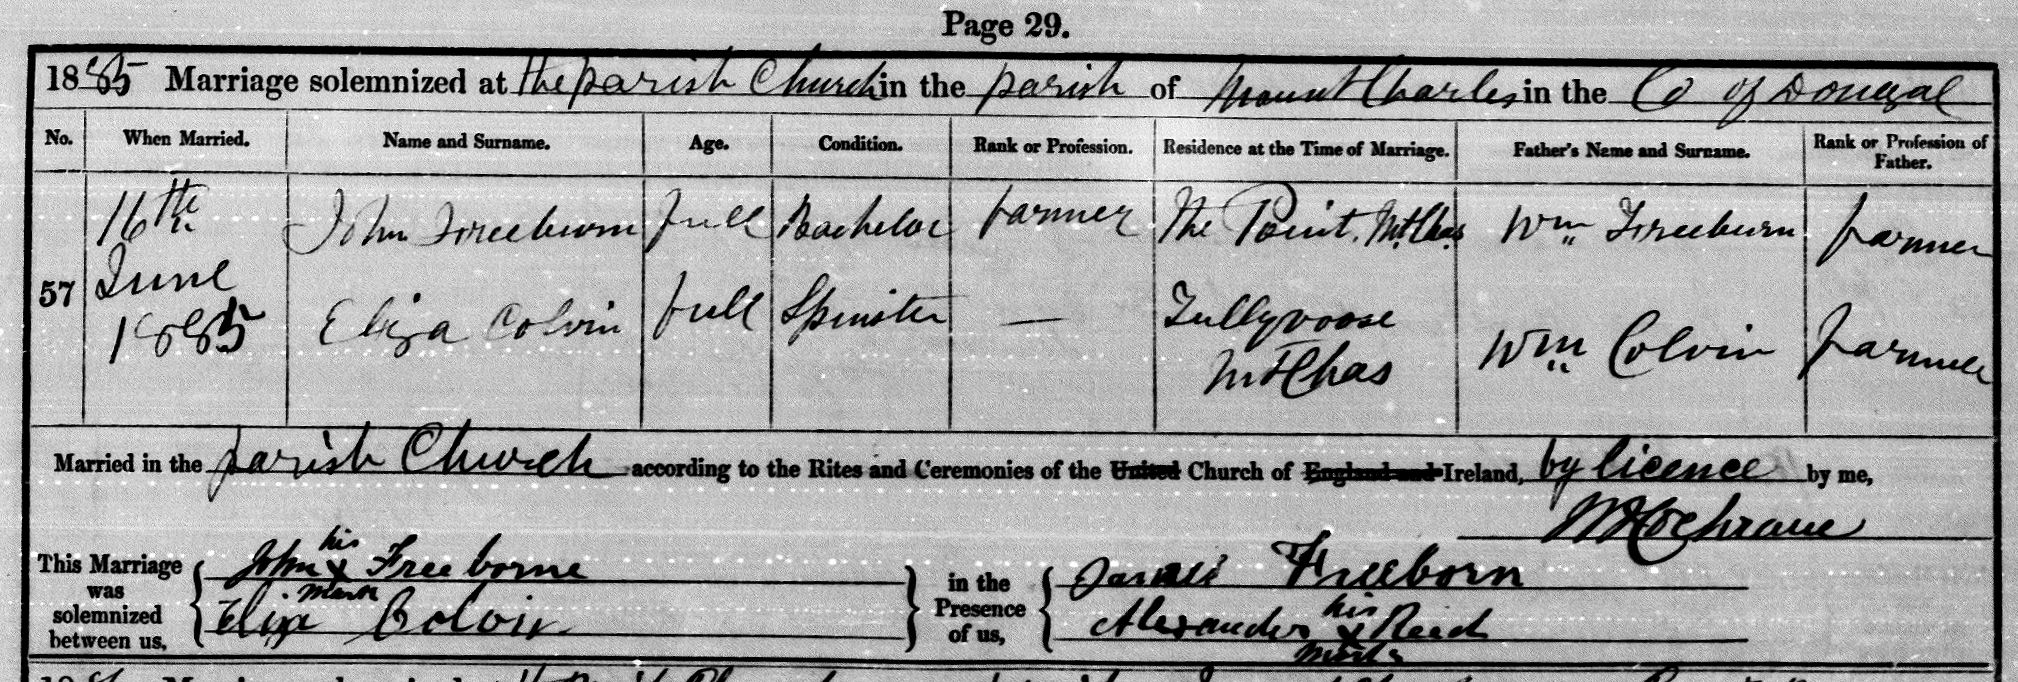 Page 29.
1885 Marriage solemnized at the parish Church in the parish of Mount Charles in the Co of Donegal
No. When Married. Name and Surname. Age. Condition. Rank or Profession. Residence at the Time of Marriage. Father's Name and Surname. Rank or Profession of Father.
16th John Freeburn full Bachelor farmer The Point. Mt Chas Wm Freeburn farmer
57 June
1885 Eliza Colvin full Spinster — Tullyvoose Wm Colvin farmer
Mt Chas
Married in the parish Church according to the Rites and Ceremonies of the United Church of England and Ireland, by licence by me,
Cochrane
his
This Marriage was solemnized between us, John x Freeborne in the Presence of us, James Freeborn
mark his
Eliza Colvin Alexander x Reed
mark